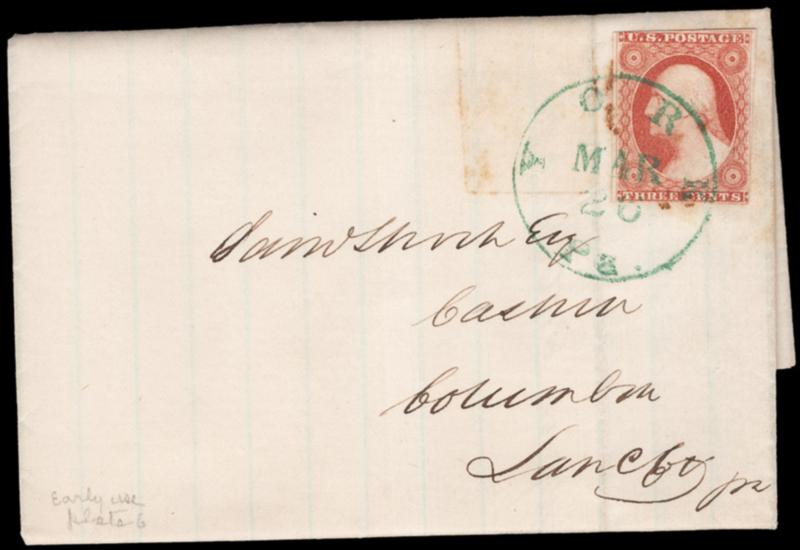 U.S. POSTAGE
THREE CENTS
YORK
MAR
26
Pa.
Saml Shoch Esq
Cashier
Columbia
Lanc Co pa
Early use
plate 6